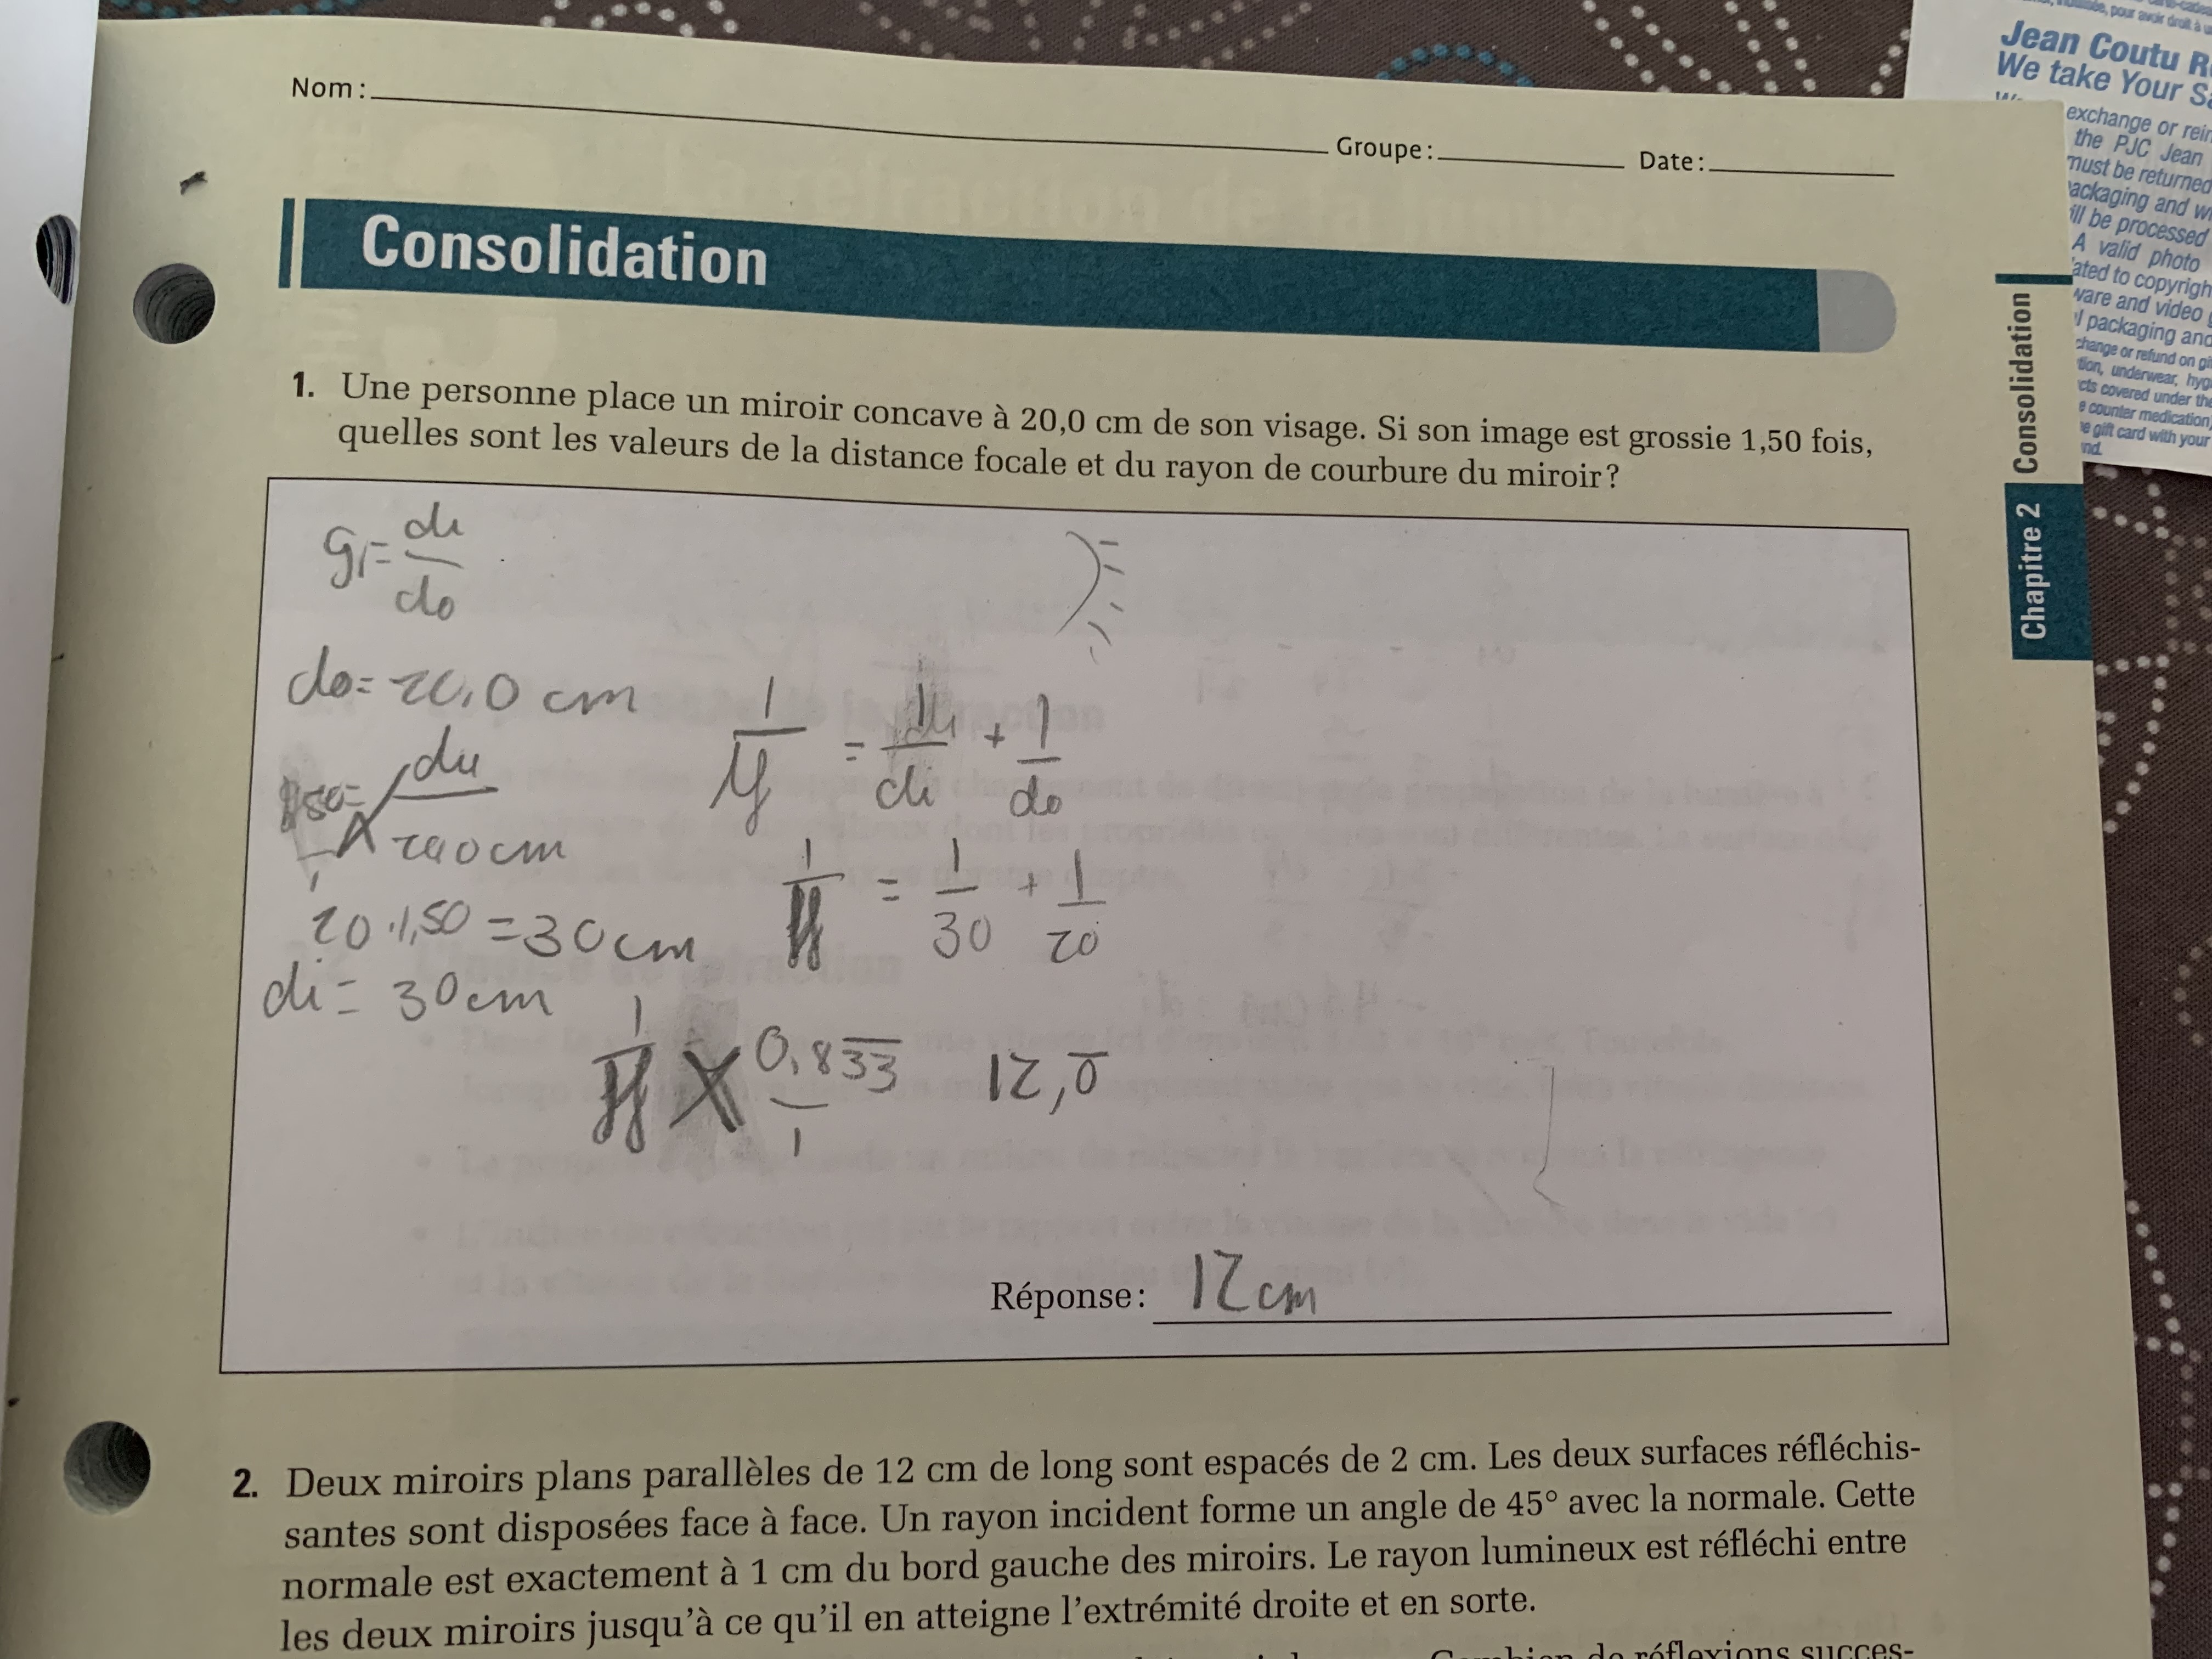 Nom :
Groupe :
Date :
Consolidation
1. Une personne place un miroir concave à 20,0 cm de son visage. Si son image est grossie 1,50 fois,
quelles sont les valeurs de la distance focale et du rayon de courbure du miroir ?
g = di/do
do = 20,0 cm
1/f = 1/di + 1/do
1/f = 1/30 + 1/20
20 · 1,50 = 30 cm
di = 30 cm
1/f 0,833/1 12,0
Réponse : 12 cm
2. Deux miroirs plans parallèles de 12 cm de long sont espacés de 2 cm. Les deux surfaces réfléchis-
santes sont disposées face à face. Un rayon incident forme un angle de 45° avec la normale. Cette
normale est exactement à 1 cm du bord gauche des miroirs. Le rayon lumineux est réfléchi entre
les deux miroirs jusqu'à ce qu'il en atteigne l'extrémité droite et en sorte.
Combien de réflexions succes-
Chapitre 2 Consolidation
pour avoir droit à
Jean Coutu
We take Your
exchange or
the PJC Jean
must be returned
be processed
A valid photo
to copyright
and video
packaging and
or refund on
underwear,
covered under the
counter medication,
gift card with your